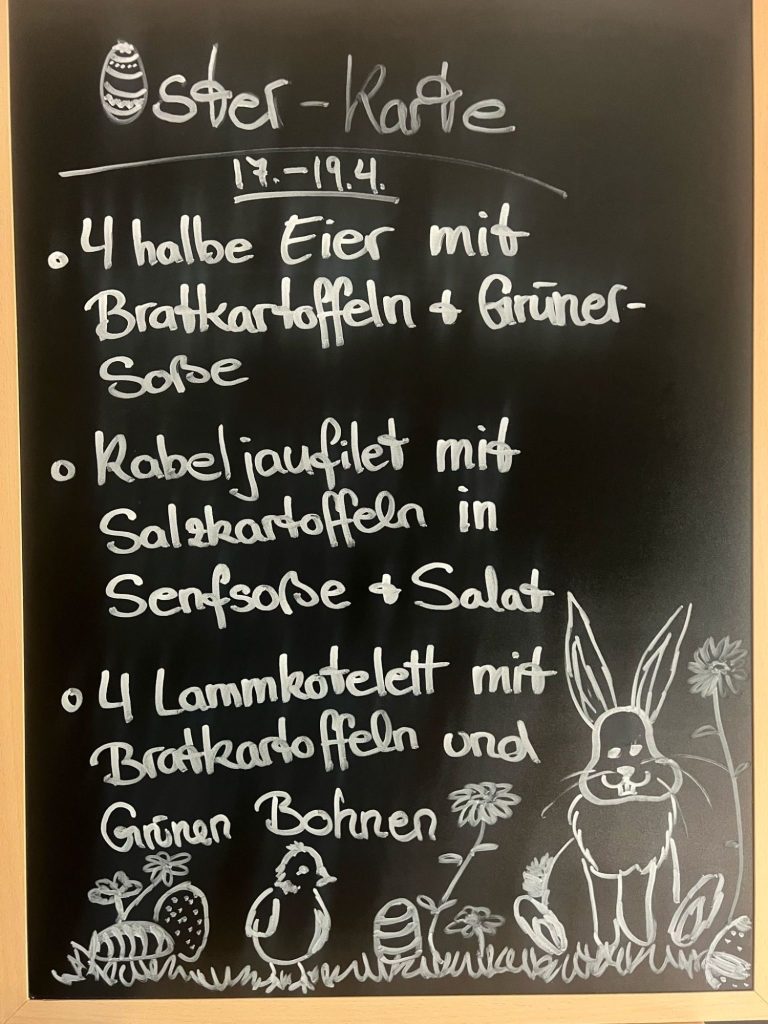 Oster-Karte
17.-19.4.
• 4 halbe Eier mit
Bratkartoffeln + Grüner-
Soße
• Kabeljaufilet mit
Salzkartoffeln in
Senfsoße + Salat
• 4 Lammkotelett mit
Bratkartoffeln und
Grünen Bohnen